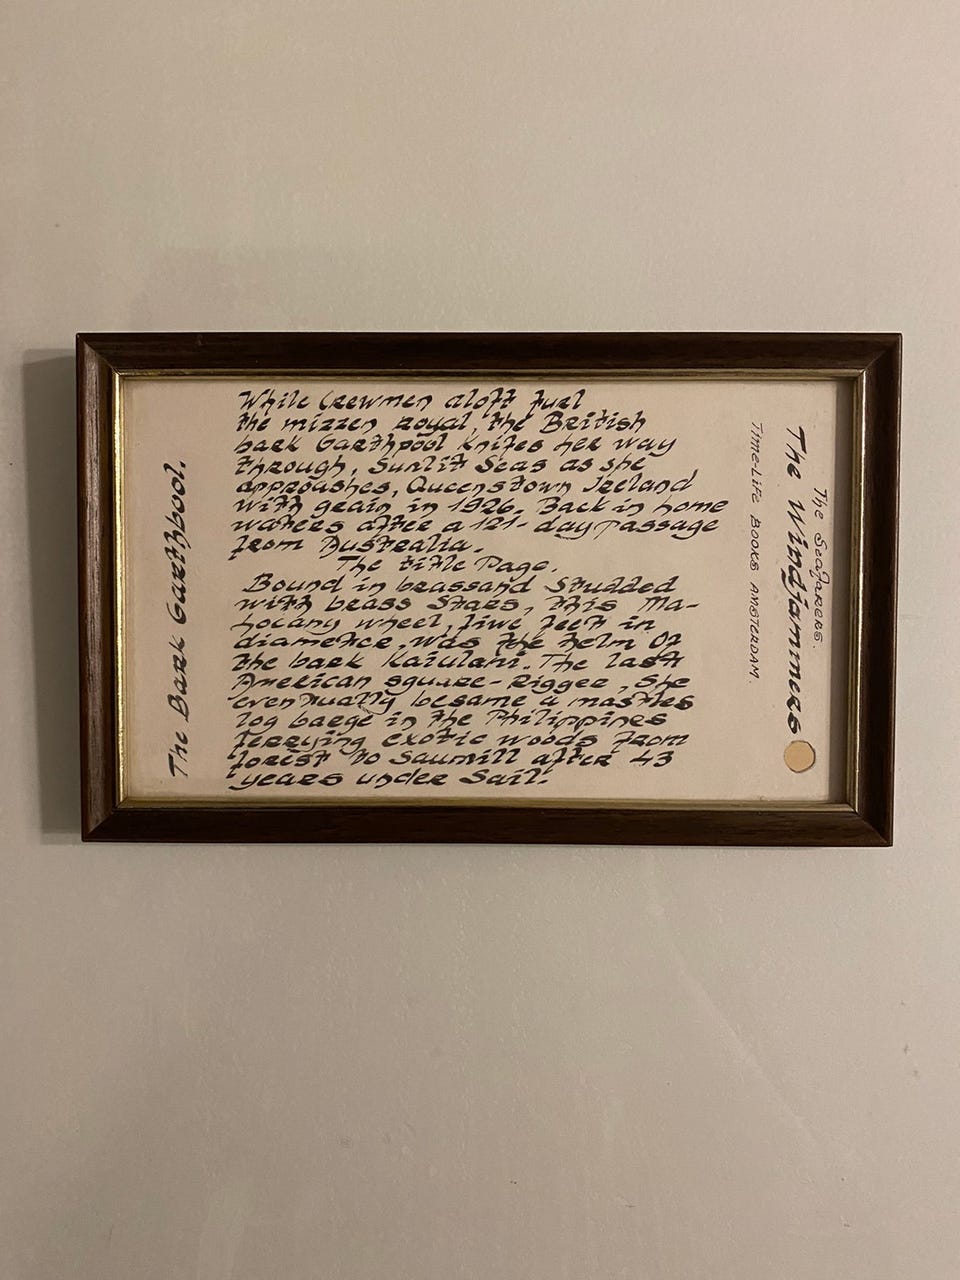 The Bark Garthpool.
While Crewmen aloft furl
the mizzen royal, the British
bark Garthpool Knifes her way
through, Sunlit Seas as she
approashes, Queenstown Ireland
with grain in 1926. Back in home
waters after a 121- day passage
from Australia.
The title Page.
Bound in brassand Studded
with brass Stars, this Ma-
hocany wheel, fiwe feet in
diameter, was the helm Of
the bark Kaiulani. The last
American square-Rigger, She
even tually besame a mastles
log barge in the Philippines
ferrying exotic woods from
forest to Saumill after 43
years under Sail.
The Seafarers.
The Windjammers
Time-Life Books Amsterdam.